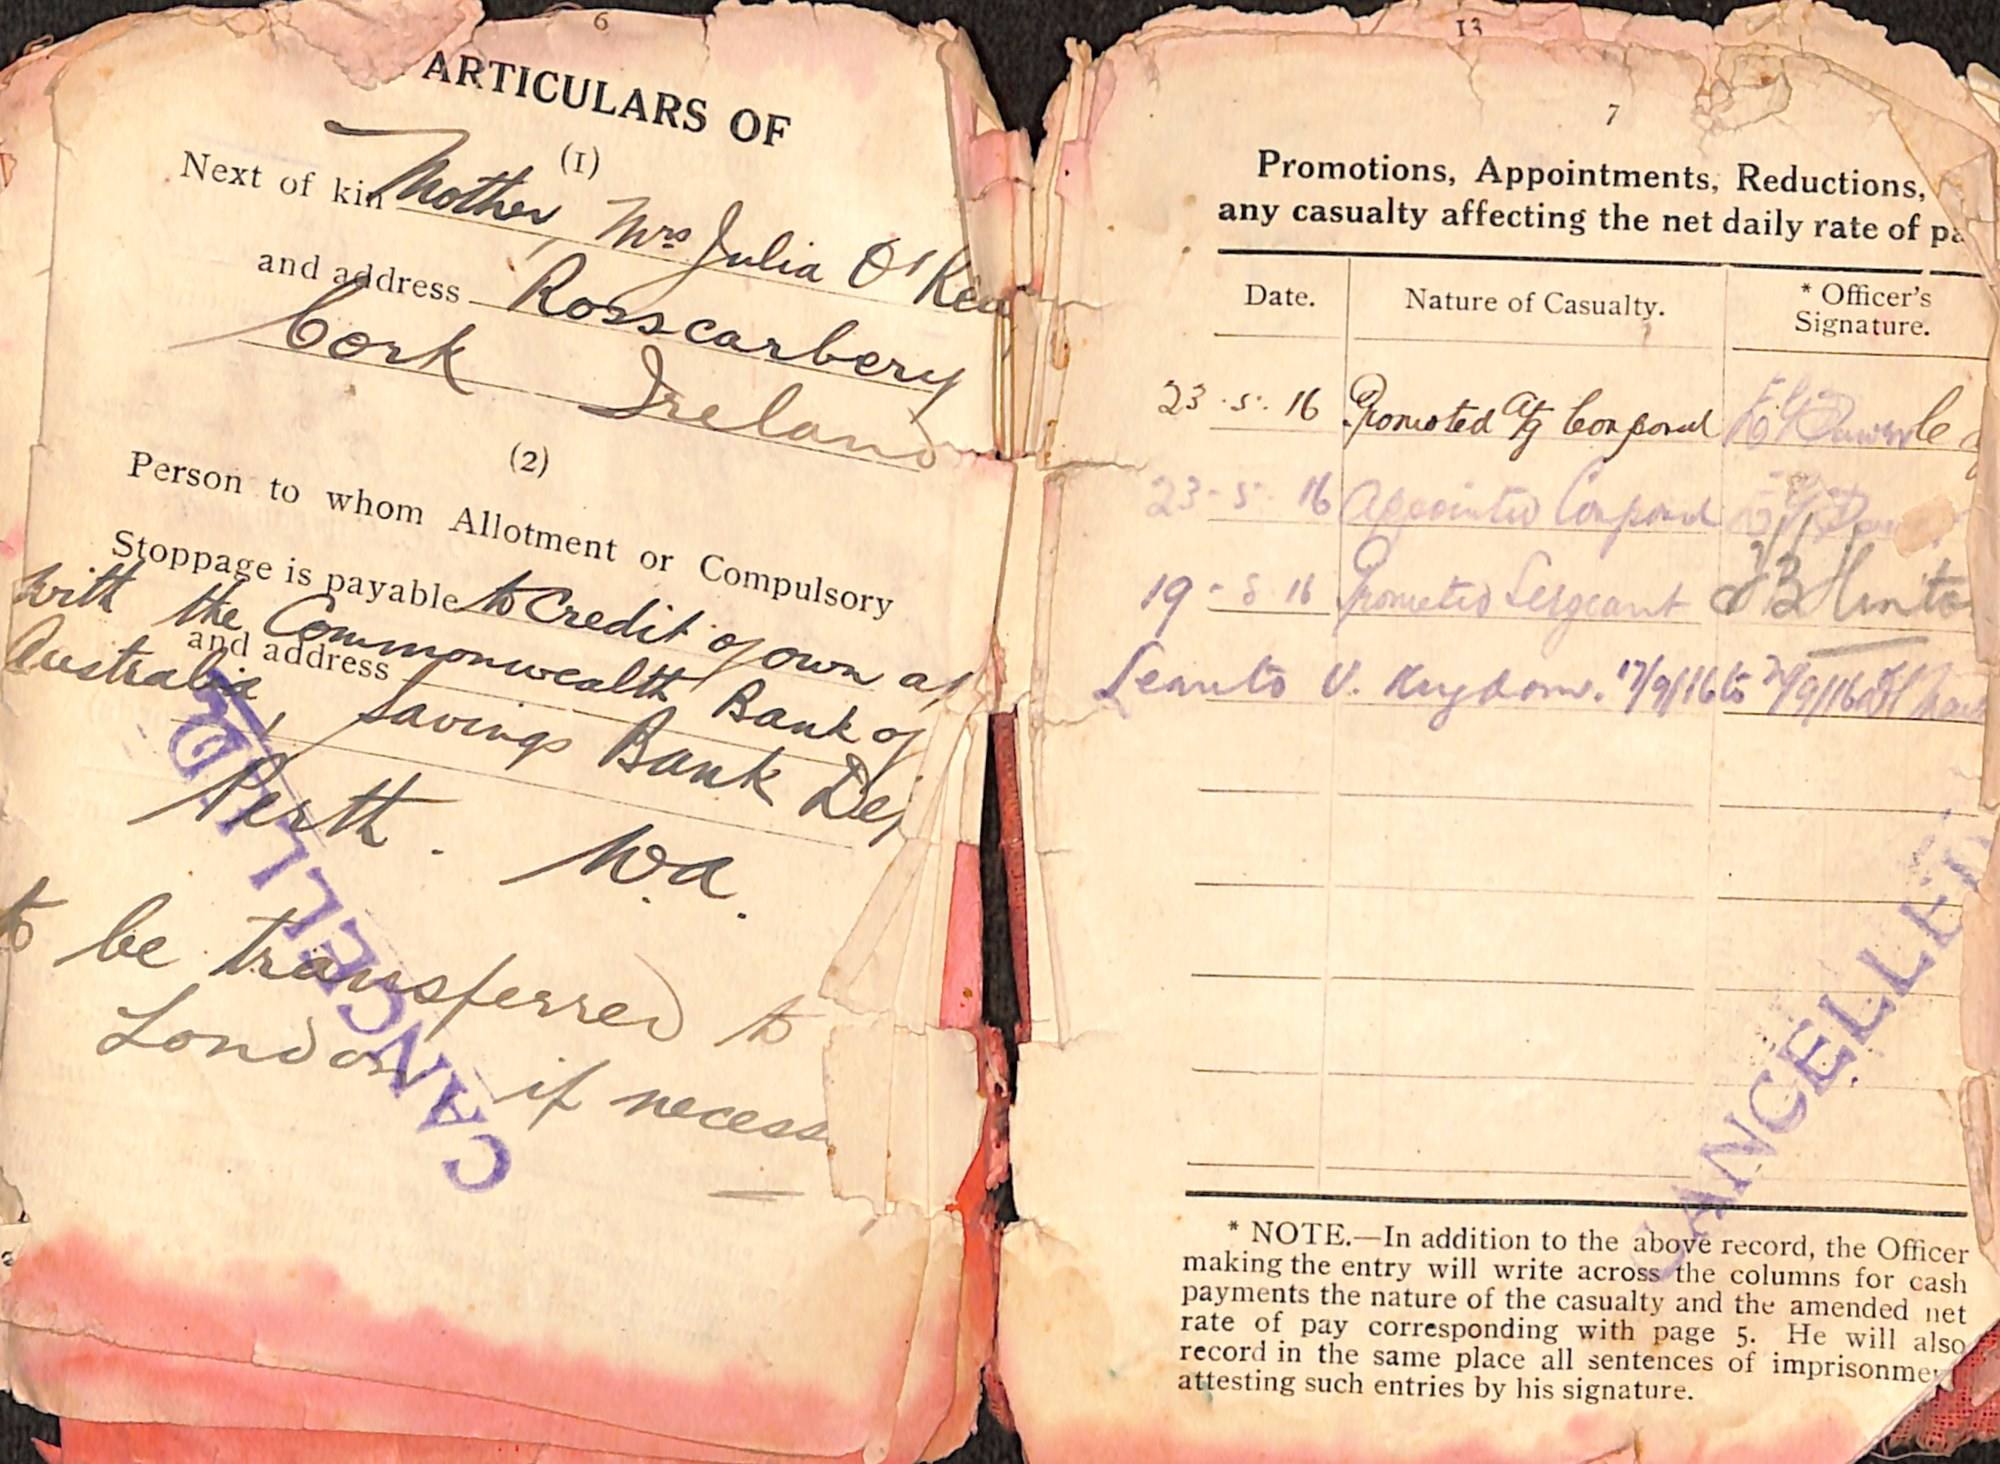 6
ARTICULARS OF
(1)
Next of kin Mother, Mrs Julia O'Kea
and address Rosscarbery
Cork Ireland
(2)
Person to whom Allotment or Compulsory
Stoppage is payable to Credit of own a/
with the Commonwealth Bank of
and address
Australia, Savings Bank De
Perth. W.A.
to be transferred to
London if necess
CANCELLED
13
7
Promotions, Appointments, Reductions,
any casualty affecting the net daily rate of pa
Date. Nature of Casualty. * Officer's Signature.
23-5-16 Promoted a/g Corporal
23-5-16 Appointed Corporal
19-8-16 Promoted Sergeant Hinto
Leave to U. Kingdom. 17/9/16 to /9/16
CANCELLED
* NOTE.—In addition to the above record, the Officer
making the entry will write across the columns for cash
payments the nature of the casualty and the amended net
rate of pay corresponding with page 5. He will also
record in the same place all sentences of imprisonme
attesting such entries by his signature.